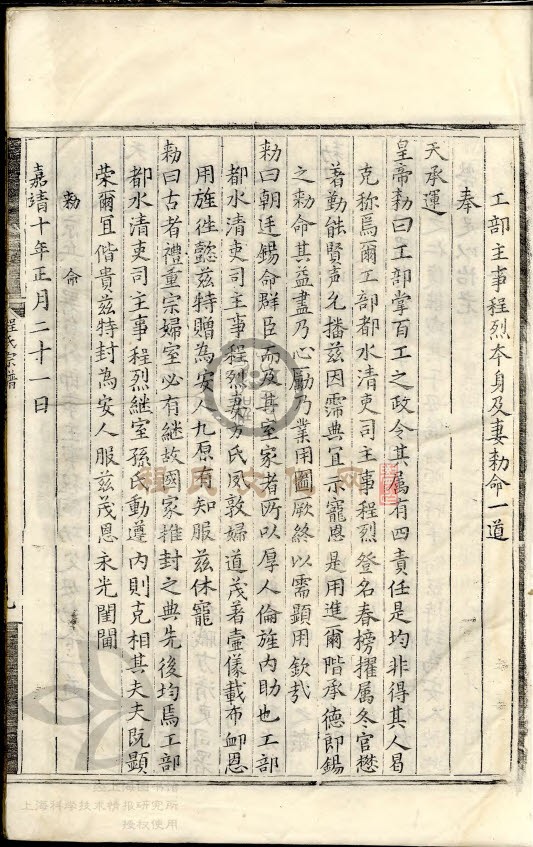 工部主事程烈本身及妻勑命一道
奉
天承運
皇帝勑曰工部掌百工之政令其属有四責任是均非得其人曷
克称焉爾工部都水清吏司主事程烈登名春榜擢属冬官懋
著勤能賢声允播兹因霈典宜示寵恩是用進爾階承德郎錫
之勑命其益盡乃心勵乃業用圖厥终以需顕用欽哉
勑曰朝廷錫命群臣而及其室家者所以厚人倫旌内助也工部
都水清吏司主事程烈妻方氏夙敦婦道茂著壼儀載布卹恩
用旌徃懿兹特贈為安人九原有知服兹休寵
勑曰古者禮重宗婦室必有継故國家推封之典先後均焉工部
都水清吏司主事程烈継室孫氏動遵内則克相其夫夫既顕
荣爾宜偕貴兹特封為安人服兹茂恩永光閨閫
勑命
嘉靖十年正月二十一日
程氏宗譜
程氏文化网
上海图书馆
上海科学技术情报研究所
授权使用